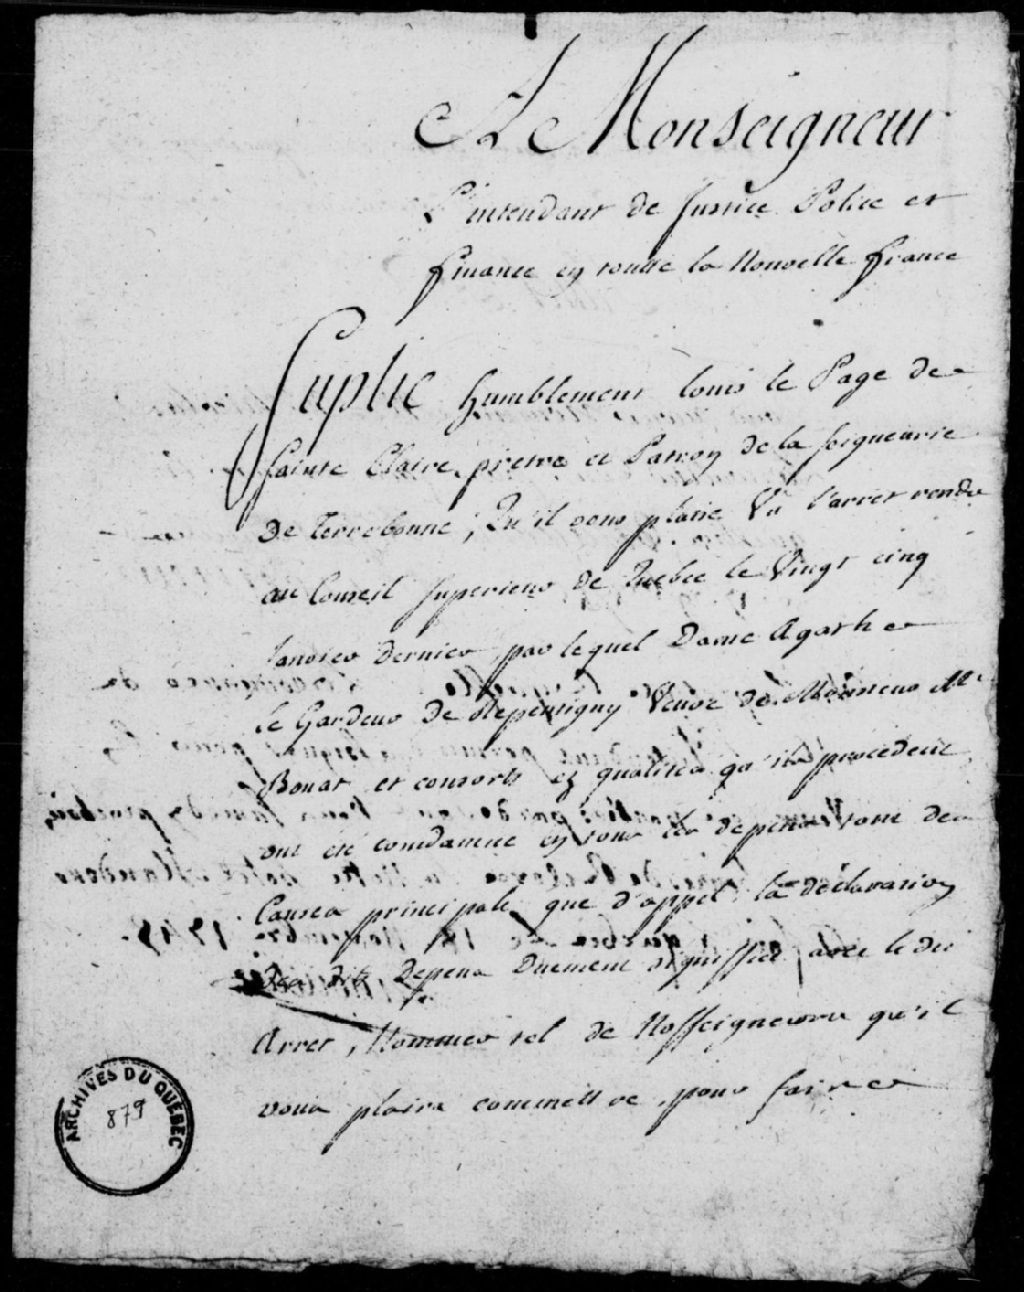 A Monseigneur
L'intendant de Justice Police et
finance en toutte la Nouvelle france
Suplie humblement louis le Page de
sainte Claire, pretre et Patron de la seigneurie
de Terrebonne, Qu'il vous plaise Vu l'arrest rendu
au Conseil superieur de Quebec le Vingt cinq
Janvier dernier par lequel Dame Agathe
le Gardeur de Repentigny Veuve de Monsieur Me
Bouat et consorts ez qualités qu'ils procedent
ont été condamné en tous les depens tant des
Causes principale que d'appel la declaration
des dits Depens Duement signiffiée avec le dit
Arret, Nommer tel de Nosseigneurs qu'il
vous plaira commettre pour faire
ARCHIVES DU QUÉBEC
879